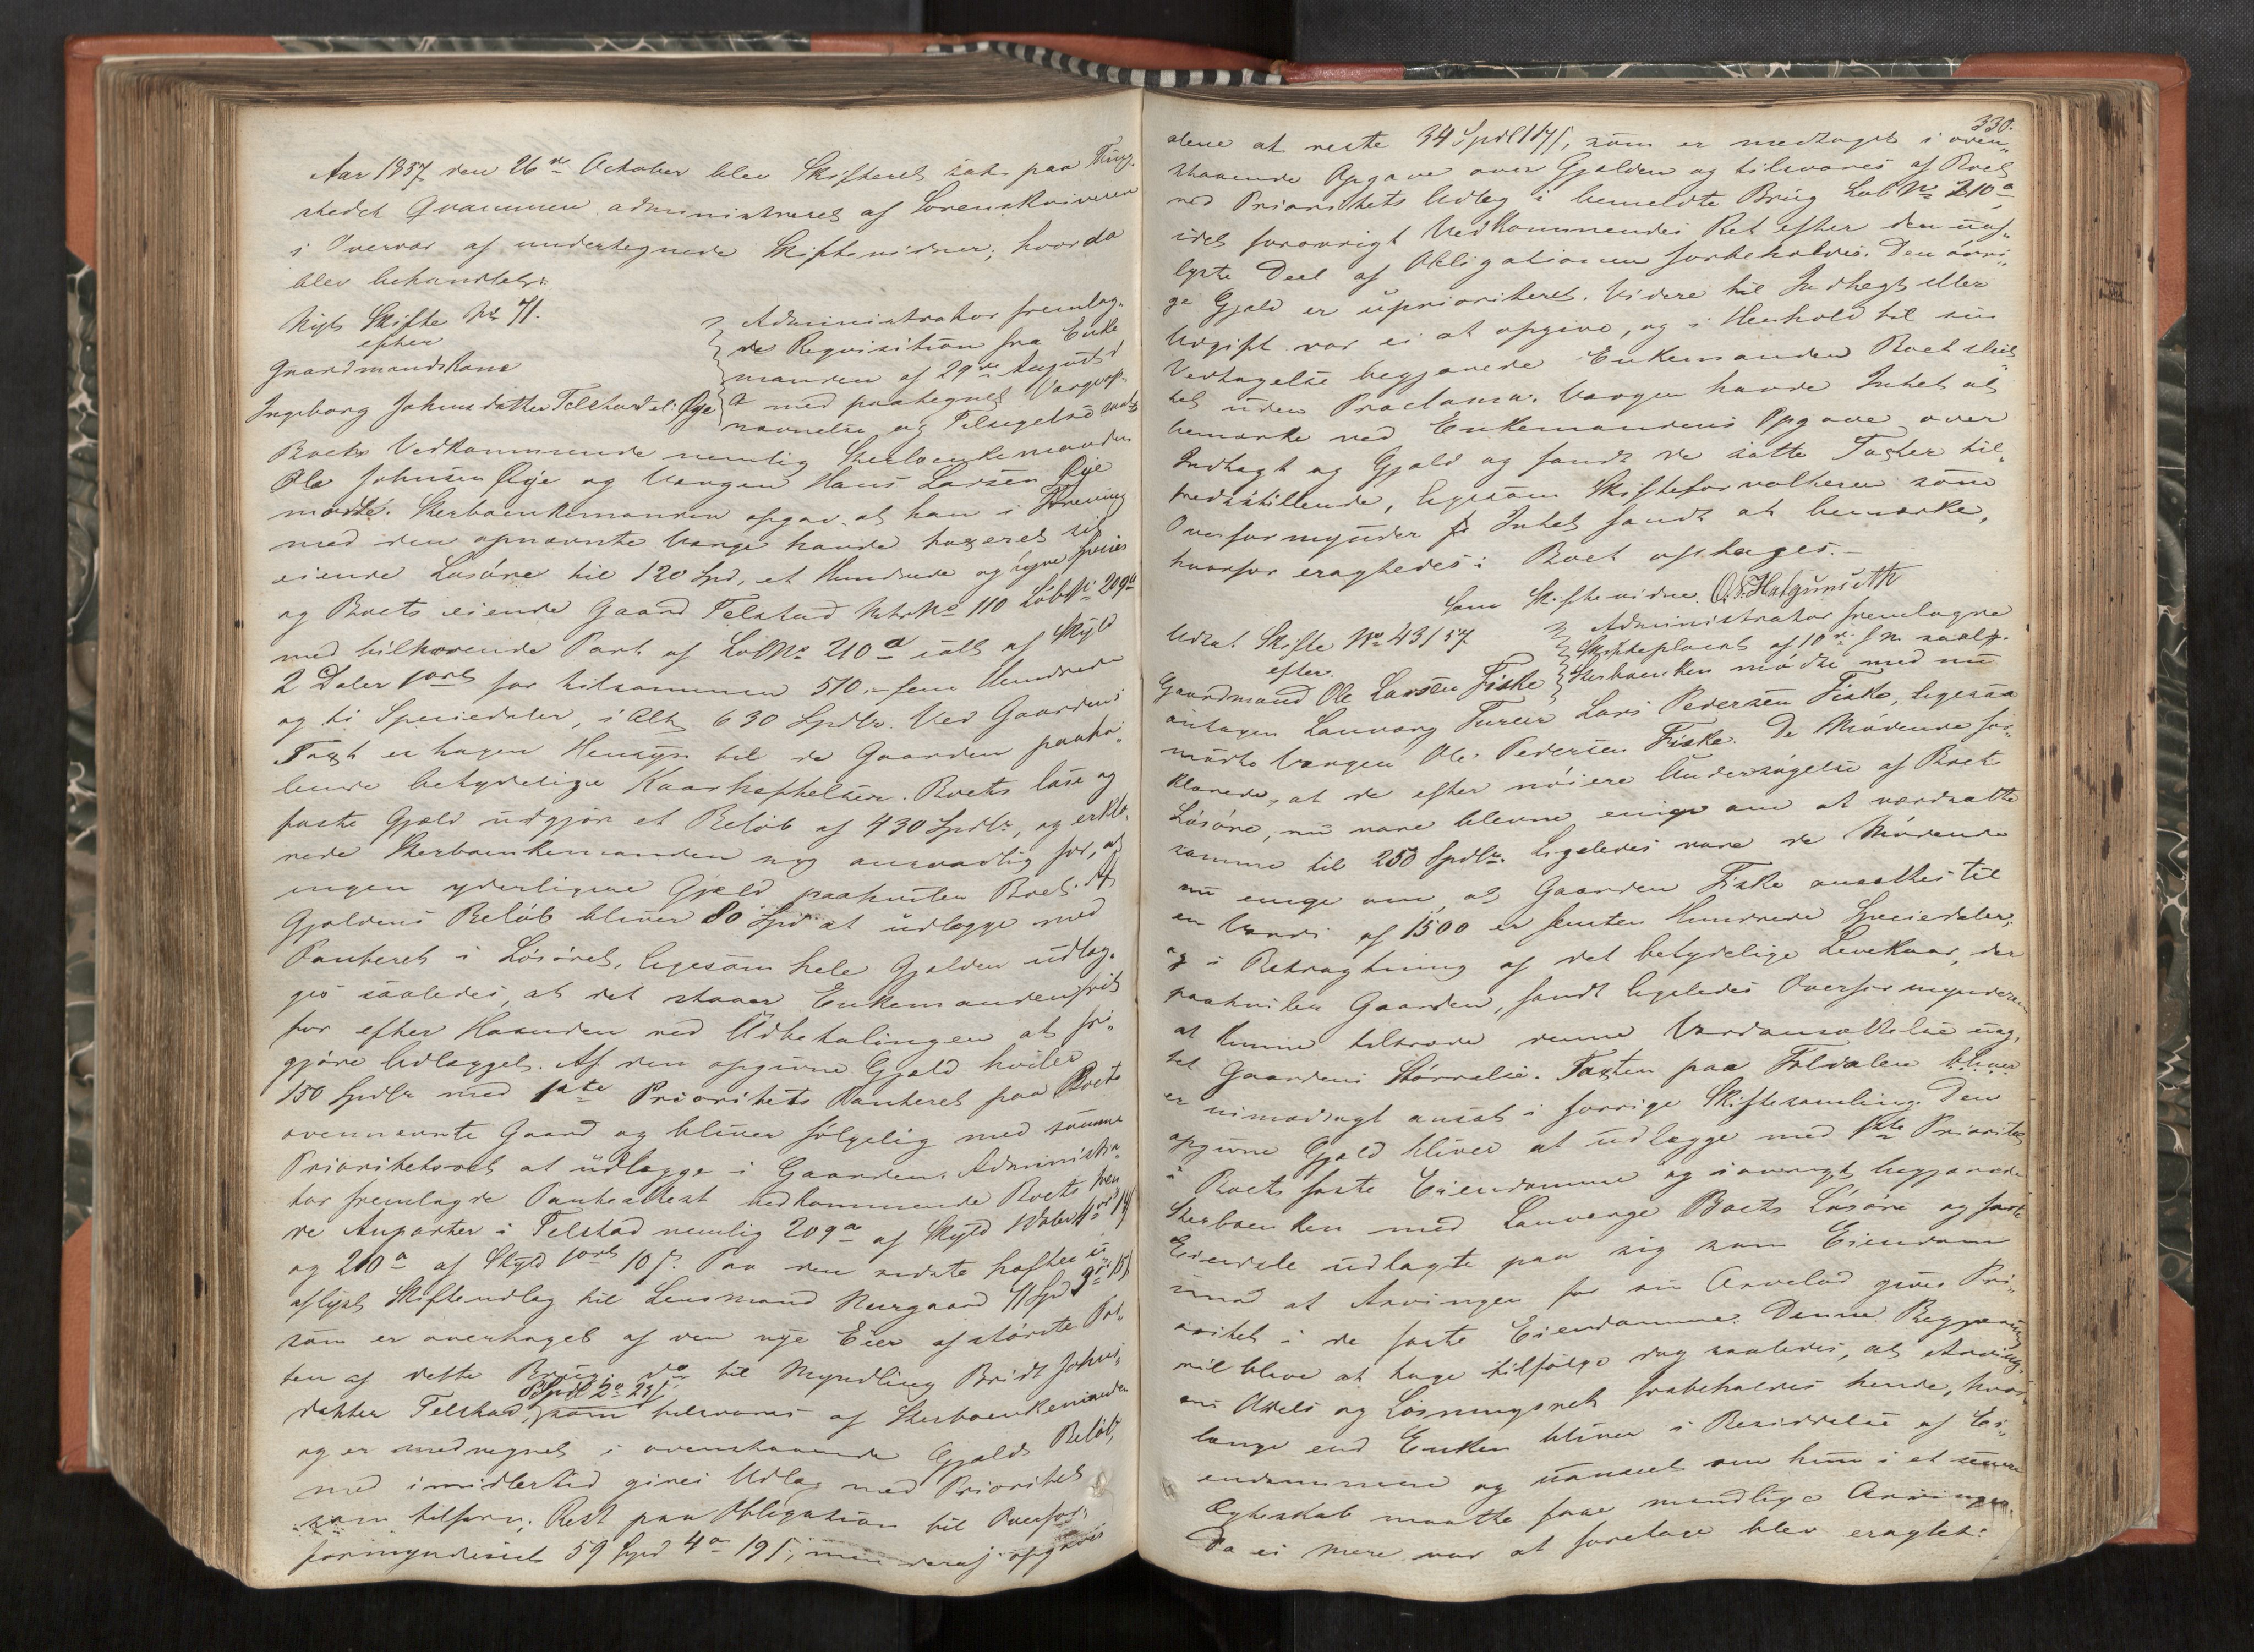 Aar 1857 den 26de October blev Skifteret sat paa Ting-
stedet Qvammen administreret af Sorenskriveren
i Overvær af undertegnede Skiftevidner; hvorda
blev behandlet:
Nyt Skifte No 71.
efter
Gaardmandskone
Ingeborg Johnsdatter Telstad el: Øye
Administrator fremlag-
de Requisition fra Enke
manden af 29de August d
A med paategnet Værgeop-
nævnelse og Tilsigelse
Boets Vedkommende nemlig Sterboenkemanden
Ole Johnsen Øye og Værgen Hans Larsen Øye
mødte. Sterboenkemanden opgav at han i Forening
med den opnævnte Værge havde taxeret sit
eiende Løsøre til 120 Spd, et Hundrede og tyve Species
og Boets eiende Gaard Telstad MtrNo 110 LøbNo 209a
med tilhørende Part af LøbNo 210a ialt af Skyld
2 Daler 1ort for tilsammen 510 - fem Hundrede
og ti Speciedaler, i Alt 630 Spdlr. Ved Gaardens
Taxt er tagen Hensyn til de Gaarden paahvi-
lende betydelige Kaarheftelser. Boets løse og
faste Gjæld udgjør et Beløb af 430 Spdlr, og erklæ-
rede Sterboenkemanden sig ansvarlig for, at
ingen yderligere Gjæld paahviler Boet. Af
Gjældens Beløb bliver 80 Spd at udlægge med
Panteret i Løsøret, ligesom hele Gjælden udlæg-
ges saaledes, at det staaer Enkemanden frit
for efter Haanden ved Udbetalingen at fri-
gjøre Udlægget. Af den opgivne Gjæld hviler
150 Spdlr med 1ste Prioritets Panteret paa Boets
ovennævnte Gaard og bliver følgelig med samme
Prioritetsret at udlægge i Gaarden. Administra-
tor fremlagde Panteattest vedkommende Boets
de Anparter i Telstad nemlig 209a af Skyld 1 Daler
og 210a af Skyld 1ort 10 s. Paa den sidste hefter u
aflyst Skifteudlæg til Lensmand Neergaard
som er overtaget af den nye Eier af største Par-
ten af dette Brug; do til Myndling Bridt Johns-
datter Telstad, som tilsvares af Sterboenkemanden
og er medregnet i ovenstaaende Gjælds Beløb,
med imidlertid gives Udlæg med Prioritet
som tilforn; Rest paa Obligation til Overfor-
formynderiet 59 Spd 4o 19 s; men deraf opgaves
330.
alene at reste 34 Spdl 11 s, som er medtaget i oven-
staaende Opgave over Gjælden og tilsvares af Boet
ved Prioritets Udlæg i bemeldte Brug Løb No 210a,
idet forøvrigt Vedkommendes Ret efter den uaf-
lyste Deel af Obligationen forbeholdes. Den øvri-
ge Gjæld er uprioriteret. Videre til Indtægt eller
Udgift var ei at opgive, og i Henhold til sin
Vedtagelse begjærede Enkemanden Boet slut-
tet uden Proclama. Værgen havde Intet at
bemærke ved Enkemandens Opgave over
Indtægt og Gjæld og fandt de satte Taxter til-
fredsstillende, ligesom Skifteforvalteren som
Overformynder Intet fandt at bemærke,
hvorfor eragtedes: Boet optages.-
Som Skiftevidne
Udsat Skifte No 43/57
efter
Gaardmand Ole Larsen Fiske
Administrator fremlagde
af 10de
Sterboenken mødte med nu
antagen Laugværg Lars Pedersen Fiske, ligesaa
mødte Værgen Ole Pedersen Fiske. De Mødende for-
klarede, at de efter nøiere Undersøgelse af Boets
Løsøre, nu vare blevne enige om at værdsætte
samme til 250 Spdlr. Ligeledes vare de Mødende
nu enige om, at Gaarden Fiske ansættes til
en Værdi af 1500 er femten Hundrede Speciedaler,
og i Betragtning af det betydelige Levekaar, der
paahviler Gaarden, fandt ligeledes Overformynderen
at kunne tiltræde denne Værdiansættelse uag-
tet Gaardens Størrelse. Taxten paa Foldalen bliver
er uimodsagt ansat i forrige Skiftesamling. Den
opgivne Gjæld bliver at udlægge med 1ste Prioritet
i Boets faste Eiendomme og iøvrigt begjærede
Sterboenken med Laugværge Boets Løsøre og faste
Eiendele udlagte paa sig som Eiendom
imod at Arvingen for sin Arvelod gives Pri-
oritet i de faste Eiendomme. Denne Begjæring
vil blive at tage tilfølge dog saaledes, at Arving-
ens Odels og Løsningsret forbeholdes hende, hvor-
længe end Enken bliver i Besiddelse af Ei-
endommene og uanseet om hun i et senere
Ægteskab maatte faae mandlige Arvinger.
Da ei mere var at foretage blev eragtet: